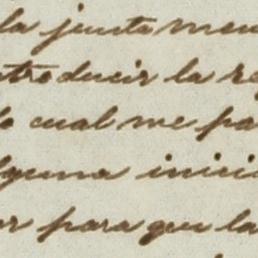 la junta men
ntroducir la re
lo cual me pa
lguna inici
or para que la